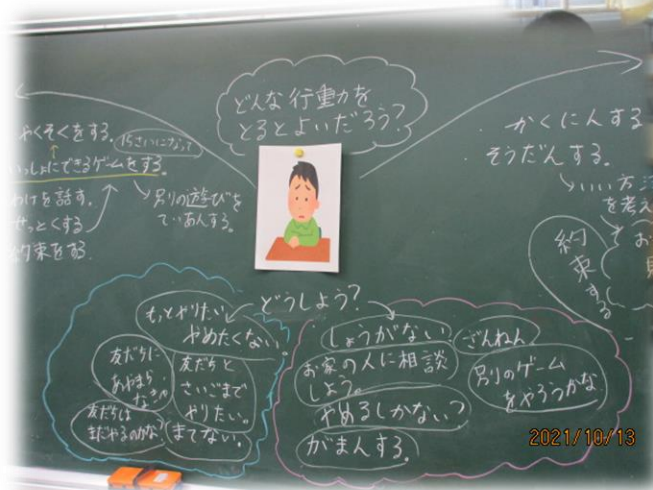 どんな行動を
とるとよいだろう?
やくそくをする。
15さいになって
いっしょにできるゲームをする。
わけを話す。
せっとくする
約束をする
別の遊びを
ていあんする。
かくにんする
そうだんする。
いい方法
を考え
約束する
お
どうしよう?
もっとやりたい
やめたくない。
友だちに
あやまら
なきゃ
友だちと
さいごまで
やりたい。
友だちは
まだやるのかな?
まてない。
しょうがない
お家の人に相談
しよう。
やめるしかない?
がまんする。
ざんねん
別のゲーム
をやろうかな
2021/10/13